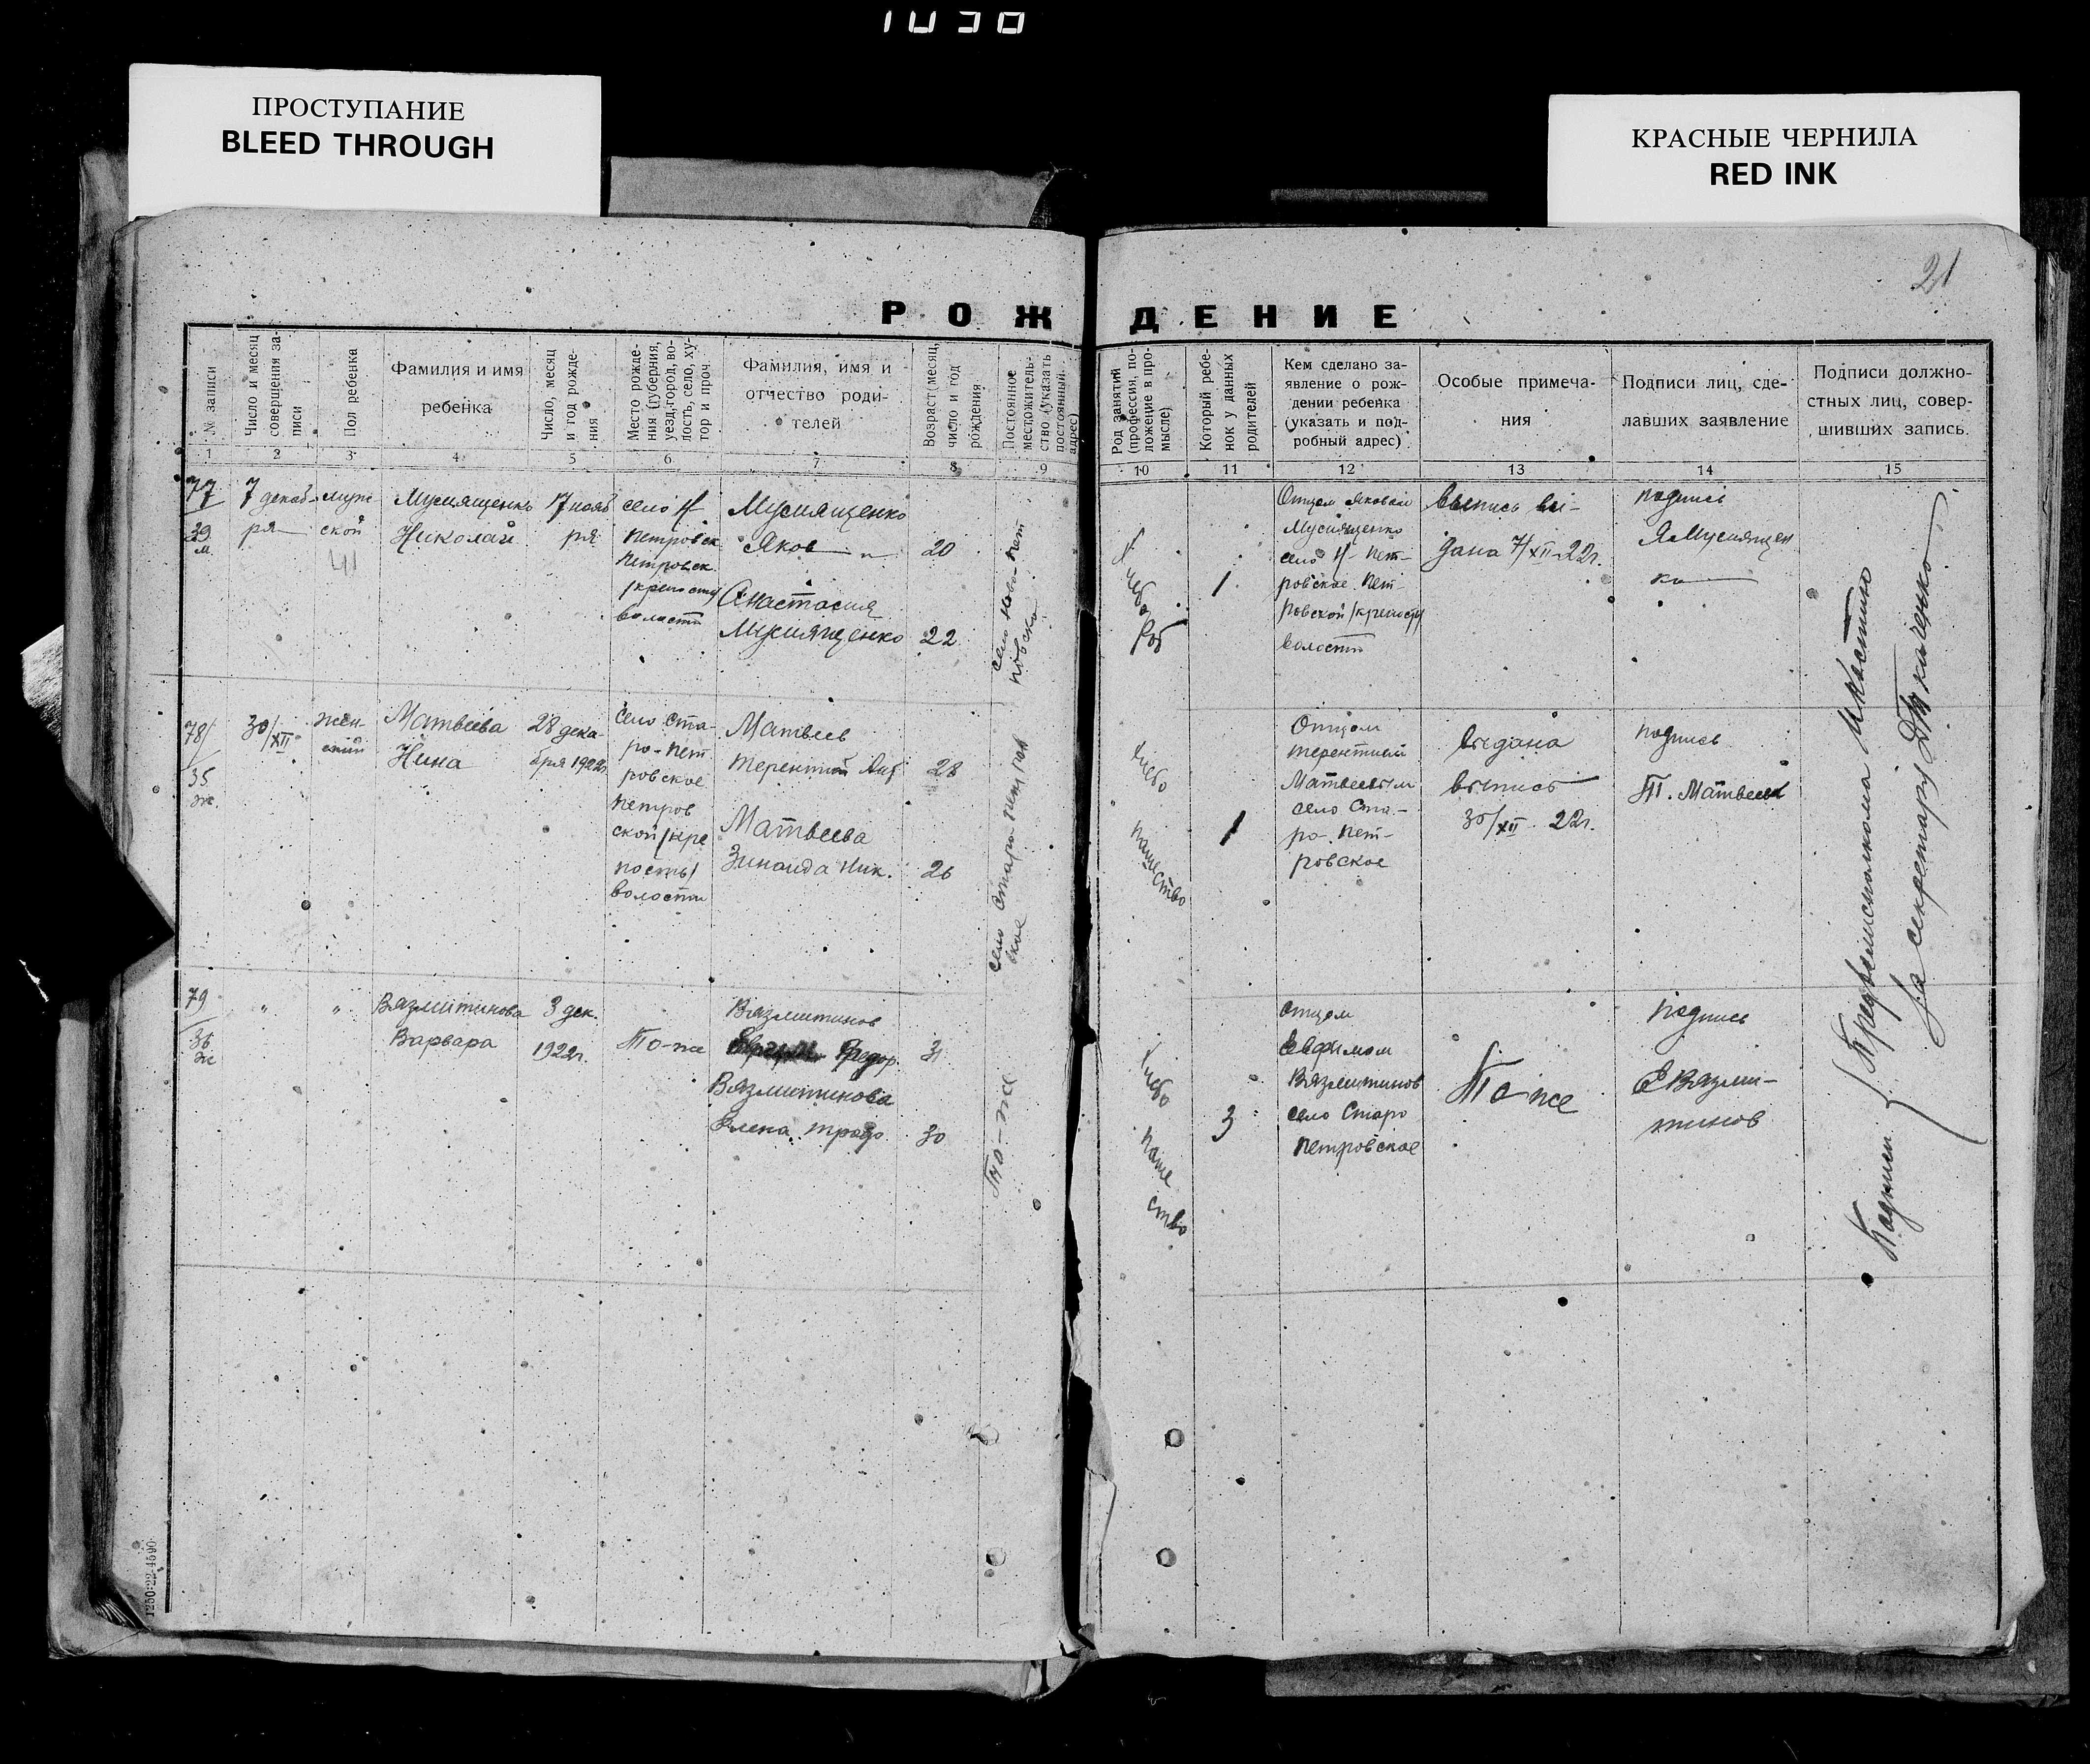 1030
ПРОСТУПАНИЕ
BLEED THROUGH
КРАСНЫЕ ЧЕРНИЛА
RED INK
21
РОЖДЕНИЕ
№ записи
Число и месяц
совершения за-
писи
Пол ребенка
Фамилия и имя
ребенка
Число, месяц
и год рожде-
ния
Место рожде-
ния (губерния,
уезд, город, во-
лость, село, ху-
тор и проч
Фамилия, имя и
отчество роди-
телей
Возраст месяц,
число и год
рождения
Постоянное
местожитель-
ство (указать
постоянный
адрес)
Род занятий
(профессия, по-
ложение в про-
мысле)
Который ребе-
нок у данных
родителей
Кем сделано за-
явление о рож-
дении ребенка
(указать и под-
робный адрес)
Особые примеча-
ния
Подписи лиц, сде-
лавших заявление
Подписи должно-
стных лиц, совер-
шивших запись.
1 2 3 4 5 6 7 8 9 10 11 12 13 14 15
77
39
м
7 декаб-
ря
муж
ской
Мусиященко
Николай
17 нояб
ря
село Н
Петровск
Петровск.
/крепость/
волости
Мусиященко
Яков
20
Анастасия
Мусиященко
22
село Ново-Пет
ровска
1
Отцом Яковом
Мусиященко
село Н-Пет-
ровское Пет
ровской /крепость/
волости
Выпись вы-
дана 7/XII-22г.
подпись
Я Мусиящен
ко
78/
35
ж.
30/XII
жен-
ский
Матвеева
Нина
28 дека-
бря 1922г
Село Ста-
ро-Пет
ровское
Петров
ской /кре
пость/
волости
Матвеев
Терентий
28
Матвеева
Зинаида Ник.
26
село Старо-Петров
ское
хлебо
пашество
1
Отцом
Терентием
Матвеевым
село Ста-
ро-Пет-
ровское
выдана
выпись
30/XII 22г.
подпись
Т. Матвеев
79
36
ж
"
"
Вязмитинова
Варвара
3 дек.
1922г.
То-же
Вязмитинов
Федор.
31
Вязмитинова
Елена
30
То-же
хлебо
паше
ство
3
отцом
Евфимом
Вязмитинов
село Старо
Петровское
То же
Подпись
Е Вязми-
тинов
Подписи
Предволисполкома
За секретаря Д Ткаченко
1250-22-4590